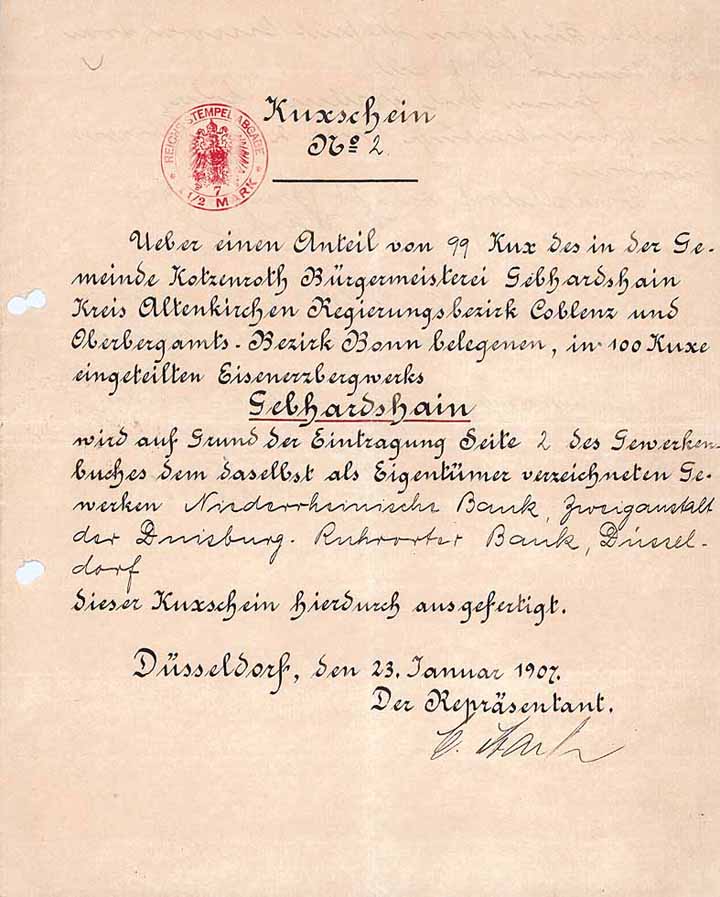 Kuxschein
No 2.
REICHS STEMPEL ABGABE
7
1 1/2 MARK
Ueber einen Anteil von 99 Kux des in der Ge-
meinde Kotzenroth Bürgermeisterei Gebhardshain
Kreis Altenkirchen Regierungsbezirk Coblenz und
Oberbergamts-Bezirk Bonn belegenen, in 100 Kuxe
eingeteilten Eisenerzbergwerks
Gebhardshain
wird auf Grund der Eintragung Seite 2 des Gewerken-
buches dem daselbst als Eigentümer verzeichneten Ge-
werken Niederrheinische Bank, Zweiganstalt
der Duisburg-Ruhrorter Bank, Düssel-
dorf
dieser Kuxschein hierdurch ausgefertigt.
Düsseldorf, den 23. Januar 1907.
Der Repräsentant.